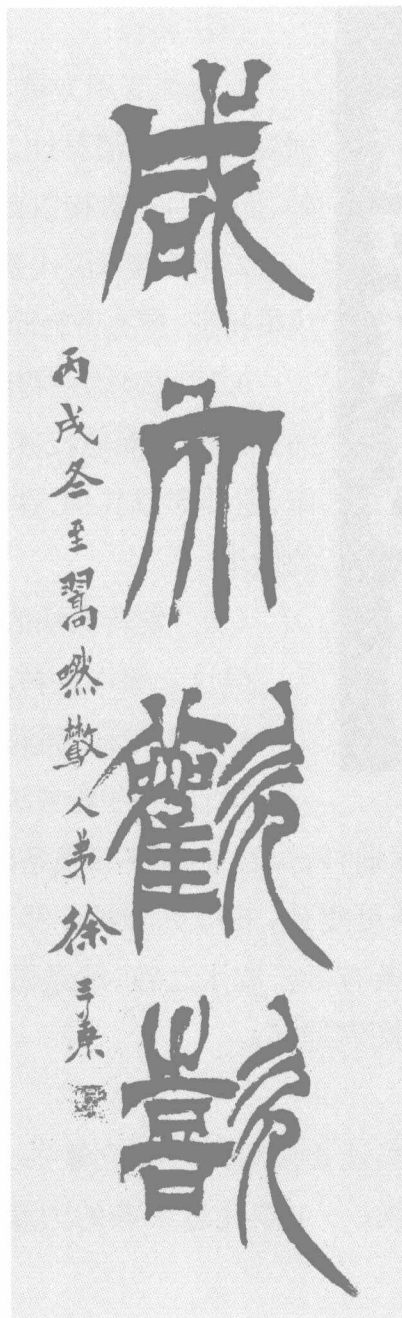 咸而歡歖
丙戌冬至翯嘫人弟徐三庚